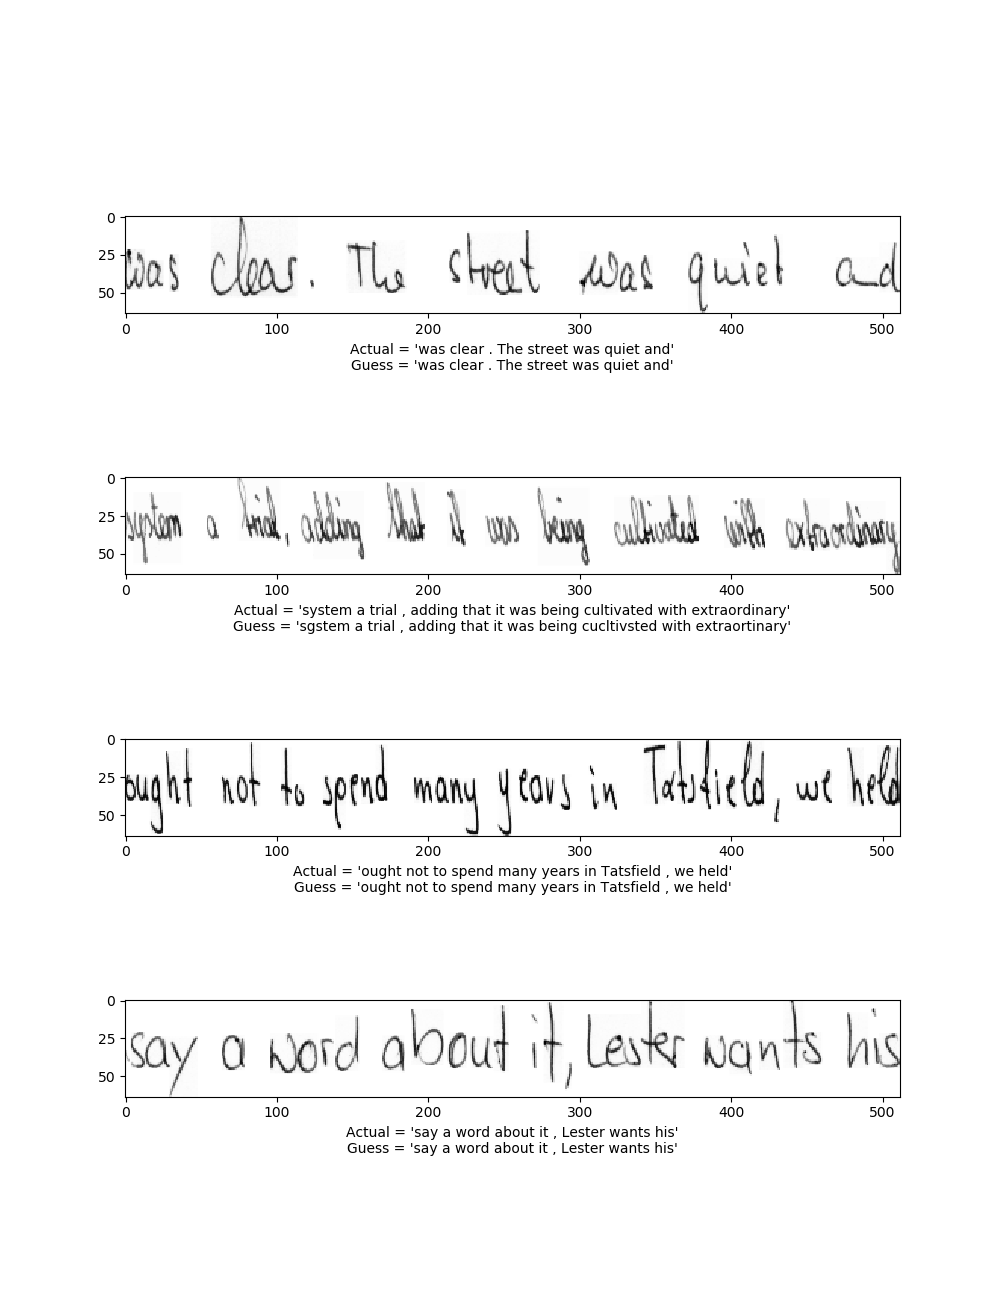 0
25
50
was clear. The street was quiet and
0 100 200 300 400 500
Actual = 'was clear . The street was quiet and'
Guess = 'was clear . The street was quiet and'
0
25
50
system a trial, adding that it was being cultivated with extraordinary
0 100 200 300 400 500
Actual = 'system a trial , adding that it was being cultivated with extraordinary'
Guess = 'sgstem a trial , adding that it was being cucltivsted with extraortinary'
0
25
50
ought not to spend many years in Tatsfield, we held
0 100 200 300 400 500
Actual = 'ought not to spend many years in Tatsfield , we held'
Guess = 'ought not to spend many years in Tatsfield , we held'
0
25
50
say a word about it, Lester wants his
0 100 200 300 400 500
Actual = 'say a word about it , Lester wants his'
Guess = 'say a word about it , Lester wants his'